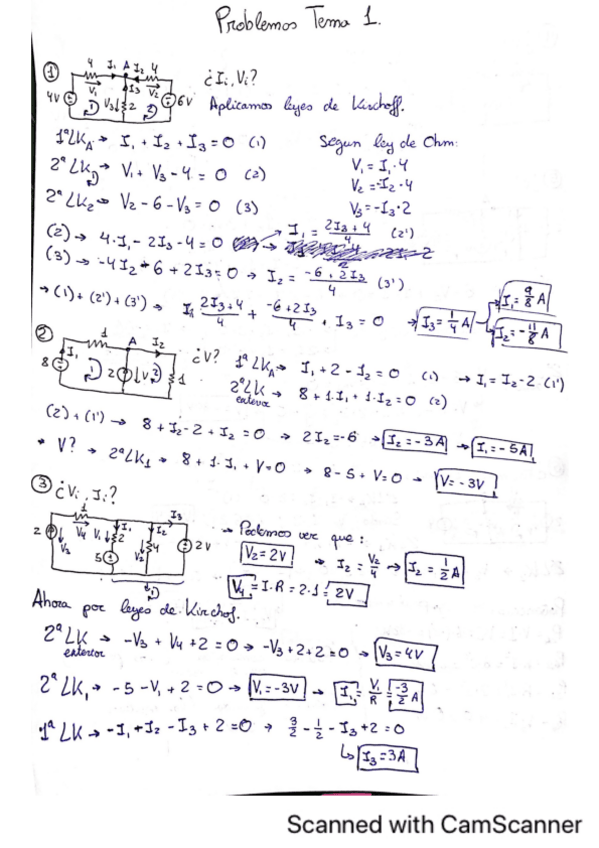 Problemas Tema 1.
① 4 I₁ A I₂ 4
4V V₁ V₃ I₃ 2 V₂ 6V
¿Ii, Vi?
Aplicamos leyes de Kirchoff.
1ªLK_A → I₁ + I₂ + I₃ = 0 (1)
Segun ley de Ohm:
2ªLK₁ → V₁ + V₃ - 4 = 0 (2)
V₁ = I₁·4
V₂ = -I₂·4
2ªLK₂ → V₂ - 6 - V₃ = 0 (3)
V₃ = -I₃·2
(2) → 4·I₁ - 2I₃ - 4 = 0 → I₁ = (2I₃+4)/4 (2')
(3) → -4I₂ - 6 + 2I₃ = 0 → I₂ = (-6+2I₃)/4 (3')
→ (1)+(2')+(3') → (2I₃+4)/4 + (-6+2I₃)/4 + I₃ = 0 → I₃ = 1/4 A
I₁ = 9/8 A
I₂ = -11/8 A
② 1 A I₂
8 I₁ 1 2 V 2 1
¿V?
1ªLK_A → I₁ + 2 - I₂ = 0 (1) → I₁ = I₂ - 2 (1')
2ªLK exterior → 8 + 1·I₁ + 1·I₂ = 0 (2)
(2)+(1') → 8 + I₂ - 2 + I₂ = 0 → 2I₂ = -6 → I₂ = -3A → I₁ = -5A
V? → 2ªLK₁ → 8 + 1·I₁ + V = 0 → 8 - 5 + V = 0 → V = -3V
③ ¿Vi, Ii?
1 I₃
2 V₃ V₄ V₁ I₁ 2 I₂ V₂ 4 2V
5
1
→ Podemos ver que:
V₂ = 2V → I₂ = V₂/4 → I₂ = 1/2 A
V₄ = I·R = 2·1 = 2V
Ahora por leyes de Kirchof.
2ªLK exterior → -V₃ + V₄ + 2 = 0 → -V₃ + 2 + 2 = 0 → V₃ = 4V
2ªLK₁ → -5 - V₁ + 2 = 0 → V₁ = -3V → I₁ = V₁/R = -3/2 A
1ªLK → -I₁ - I₂ - I₃ + 2 = 0 → 3/2 - 1/2 - I₃ + 2 = 0
↳ I₃ = 3A
Scanned with CamScanner